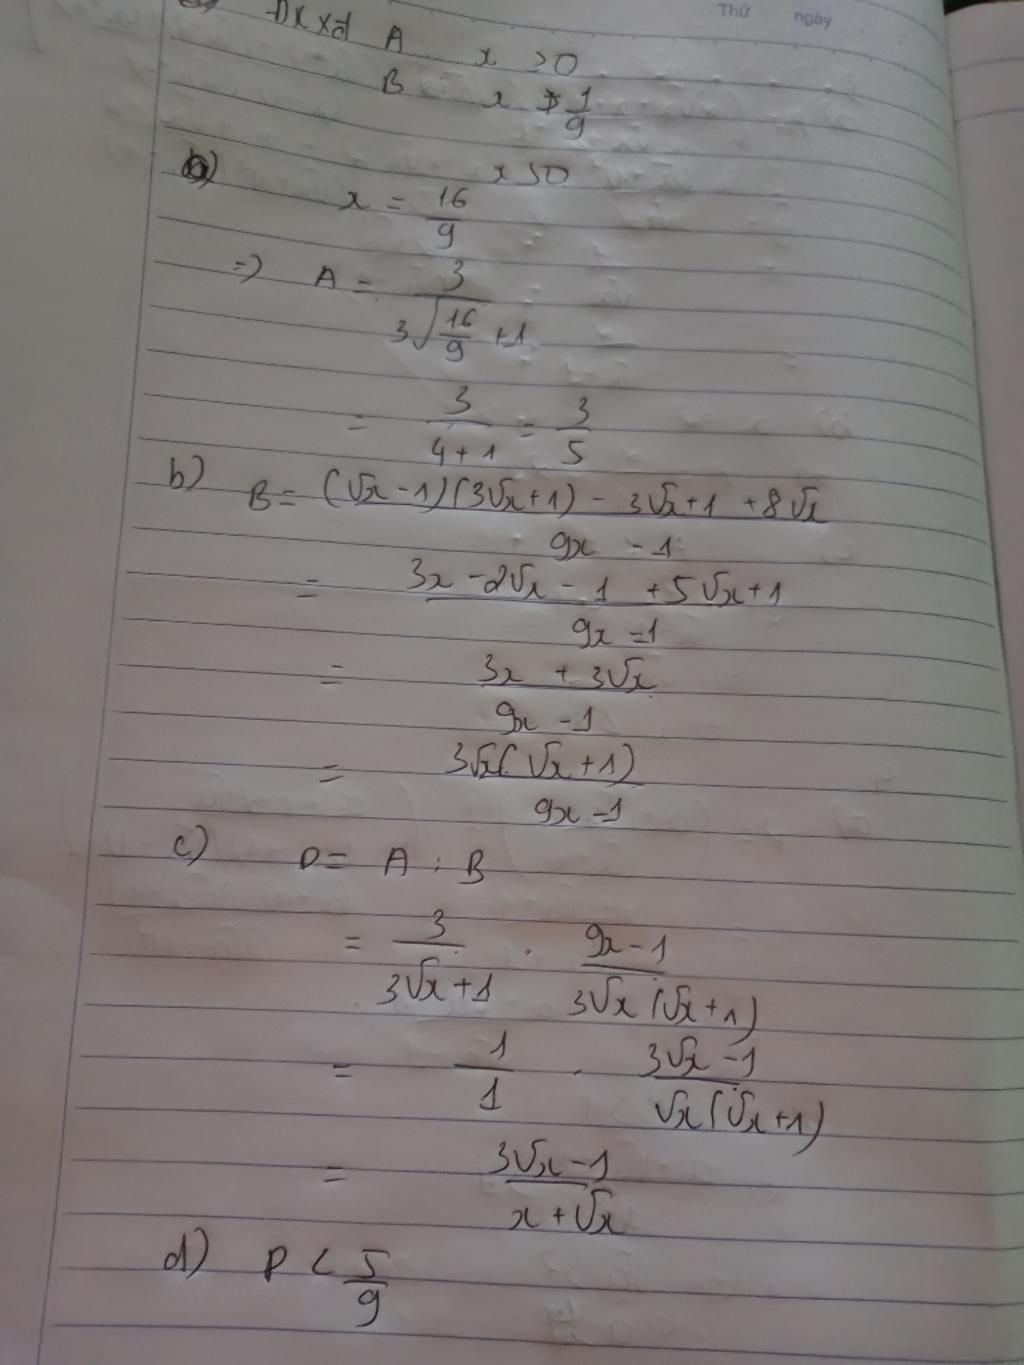 Thứ ngày
Đkxđ A x > 0
B x ≠ 1/9
x > 0
a) x = 16/9
=> A = 3/(3√(16/9) + 1)
= 3/(4 + 1) = 3/5
b) B = ((√x - 1)(3√x + 1) - 3√x + 1 + 8√x)/(9x - 1)
= (3x - 2√x - 1 + 5√x + 1)/(9x - 1)
= (3x + 3√x)/(9x - 1)
= (3√x(√x + 1))/(9x - 1)
c) P = A : B
= 3/(3√x + 1) . (9x - 1)/(3√x(√x + 1))
= 1/1 . (3√x - 1)/(√x(√x + 1))
= (3√x - 1)/(x + √x)
d) P < 5/9